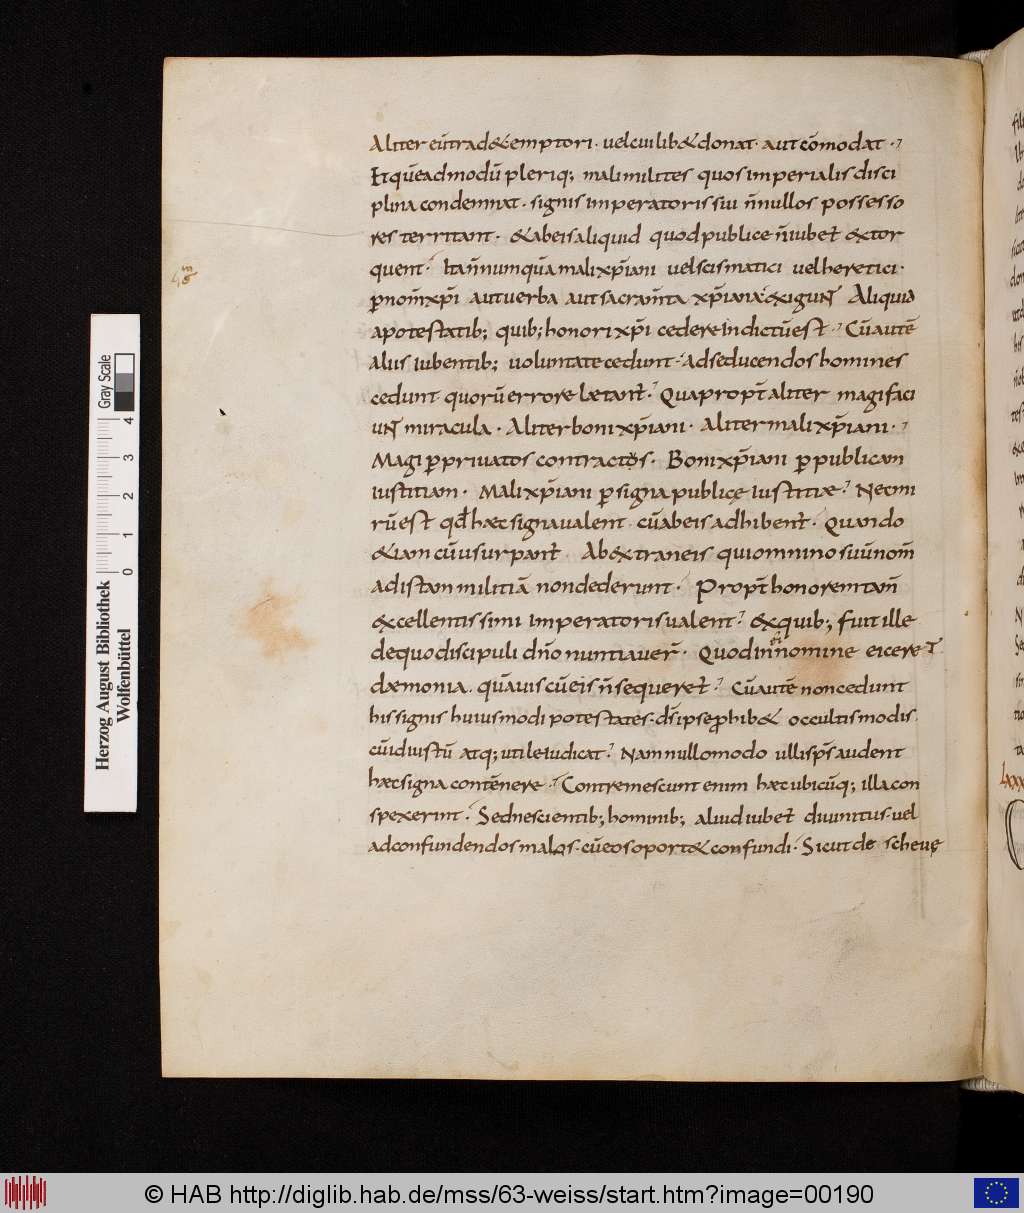 Aliter eū trad& emptori · uel cui lib& donat · aut cōmodat ·
Et quēadmodū pleriq; mali milites quos imperialis disci
plina condemnat · signis imperatoris sui n̄nullos possesso
res territant · & ab eis aliquid quod publice n̄ iubet̄ extor
quent · Ita n̄numquā mali xp̄iani uel scismatici uel heretici ·
p nom̄ xp̄i aut uerba aut sacram̄ta xp̄iana exigunt Aliquid
a potestatib; quib; honori xp̄i cedere indictū est · Cū autē
aliis iubentib; uoluntate cedunt · ad seducendos homines
cedunt quorū errore lætant̄ · Quapropt̄ aliter magi faci
unt miracula · Aliter boni xp̄iani · aliter mali xp̄iani ·
Magi p priuatos contractos · Boni xp̄iani p publicam
iustitiam · Mali xp̄iani p signa publicę iustitiæ · Nec mi
rū est qđ hæc signa ualent cū ab eis adhibent̄ · Quando
& iam cū usurpant̄ Ab extraneis qui omnino suū nom̄
ad istam militiā non dederunt · Propt̄ honorem tam̄
excellentissimi imperatoris ualent · ex quib; fuit ille
de quo discipuli dn̄o nuntiauer̄ · Quod in ei nomine eiceret
dæmonia · quāuis cū eis n̄ sequeret̄ · Cū autē non cedunt
his signis huiusmodi potestates · dš ipse phib& occultis modis ·
cū id iustū atq; utile iudicat · Nam nullo modo ulli sps̄ audent
hæc signa contēnere · Contremescunt enim hæc ubicūq; illa con
spexerint · Sed nescientib; hominib; aliud iubet̄ diuinitus · uel
ad confundendos malos · cū eos oport& confundi · Sicut de scheuę
Herzog August Bibliothek
Wolfenbüttel
0 1 2 3 4
Gray Scale
© HAB http://diglib.hab.de/mss/63-weiss/start.htm?image=00190